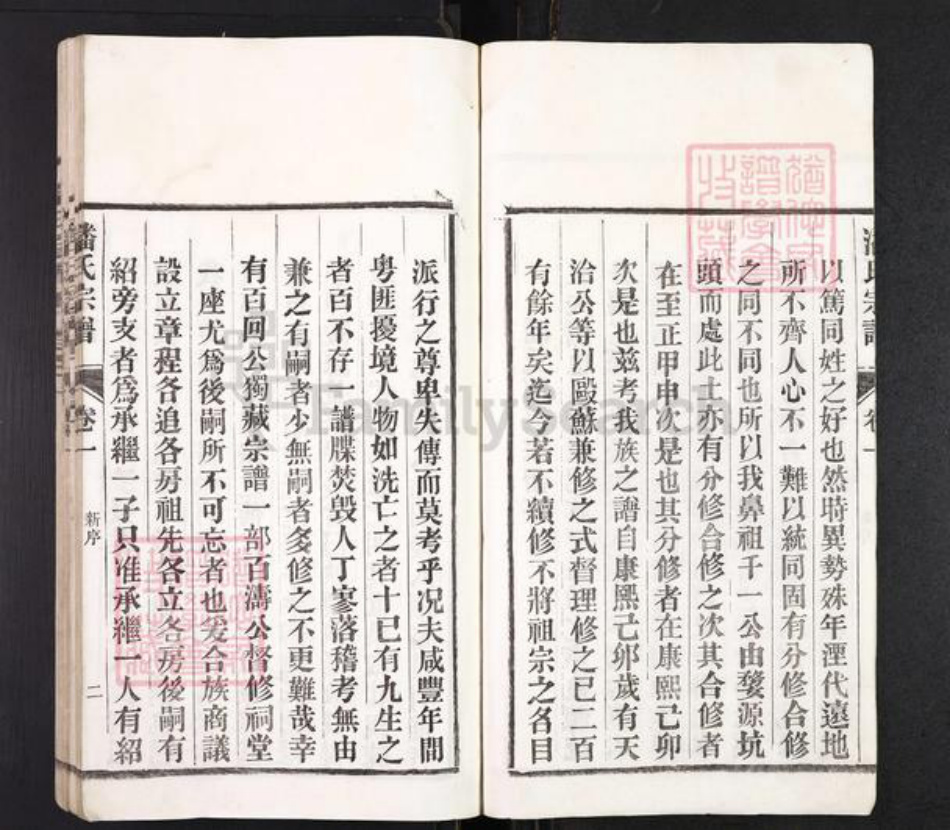 以篤同姓之好也然時異勢殊年湮代遠地
所不齊人心不一難以統同固有分修合修
之同不同也所以我鼻祖千一公由婺源坑
頭而處此土亦有分修合修之次其合修者
在至正甲申次是也其分修者在康熙己卯
次是也茲考我族之譜自康熙己卯歲有天
治公等以歐蘇兼修之式督理修之已二百
有餘年矣迄今若不續修不將祖宗之名目
派行之尊卑失傳而莫考乎况夫咸豐年間
粵匪擾境人物如洗亡之者十已有九生之
者百不存一譜牒焚毁人丁寥落稽考無由
兼之有嗣者少無嗣者多修之不更難哉幸
有百回公獨藏宗譜一部百濤公督修祠堂
一座尤爲後嗣所不可忘者也爰合族商議
設立章程各追各房祖先各立各房後嗣有
紹旁支者爲承繼一子只准承繼一人有紹
潘氏宗譜 卷一 新序 二
FamilySearch